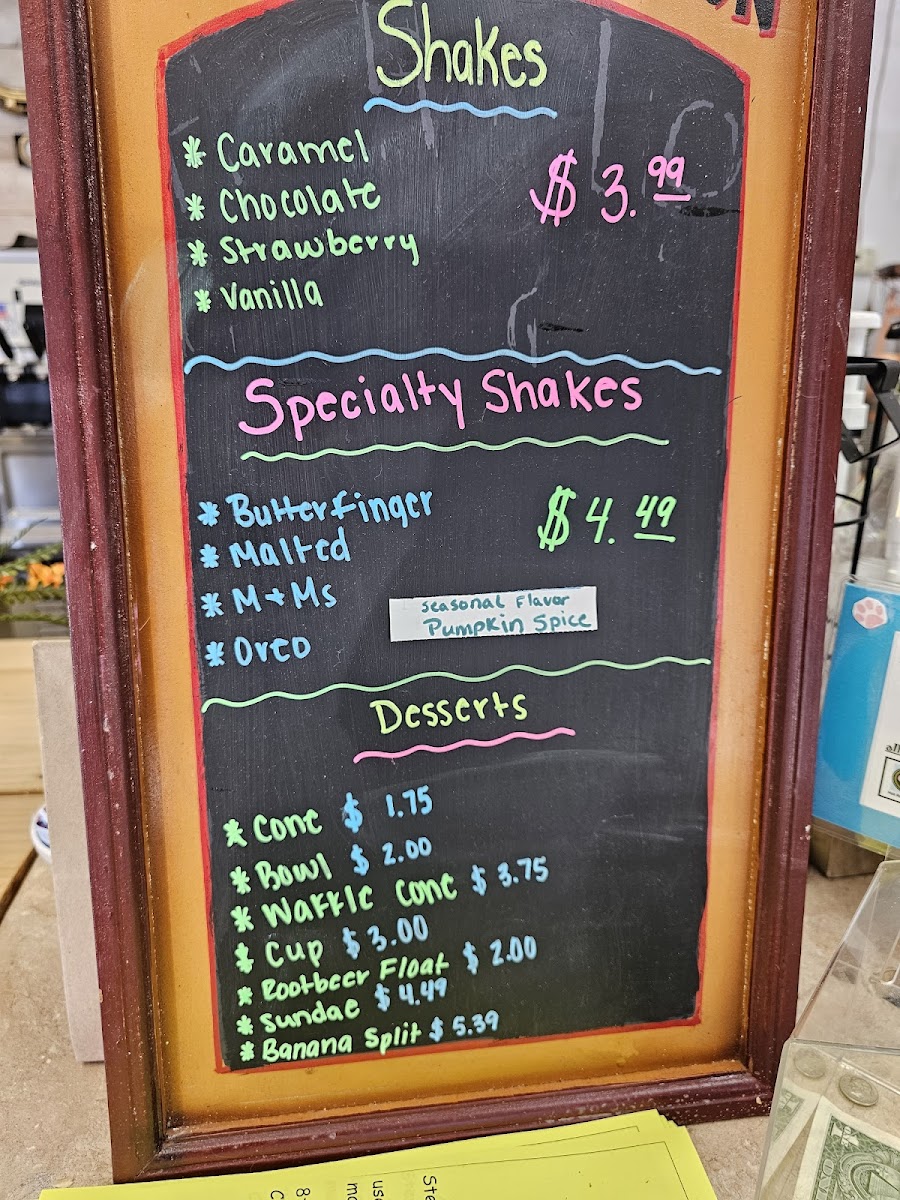 Shakes
* Caramel
* Chocolate
* Strawberry
* Vanilla
$ 3.99
Specialty Shakes
* Butterfinger
* Malted
* M+Ms
* Oreo
$ 4.49
Seasonal Flavor
Pumpkin Spice
Desserts
* Cone $ 1.75
* Bowl $ 2.00
* Waffle Cone $ 3.75
* Cup $ 3.00
* Rootbeer Float $ 2.00
* Sundae $ 4.49
* Banana Split $ 5.39